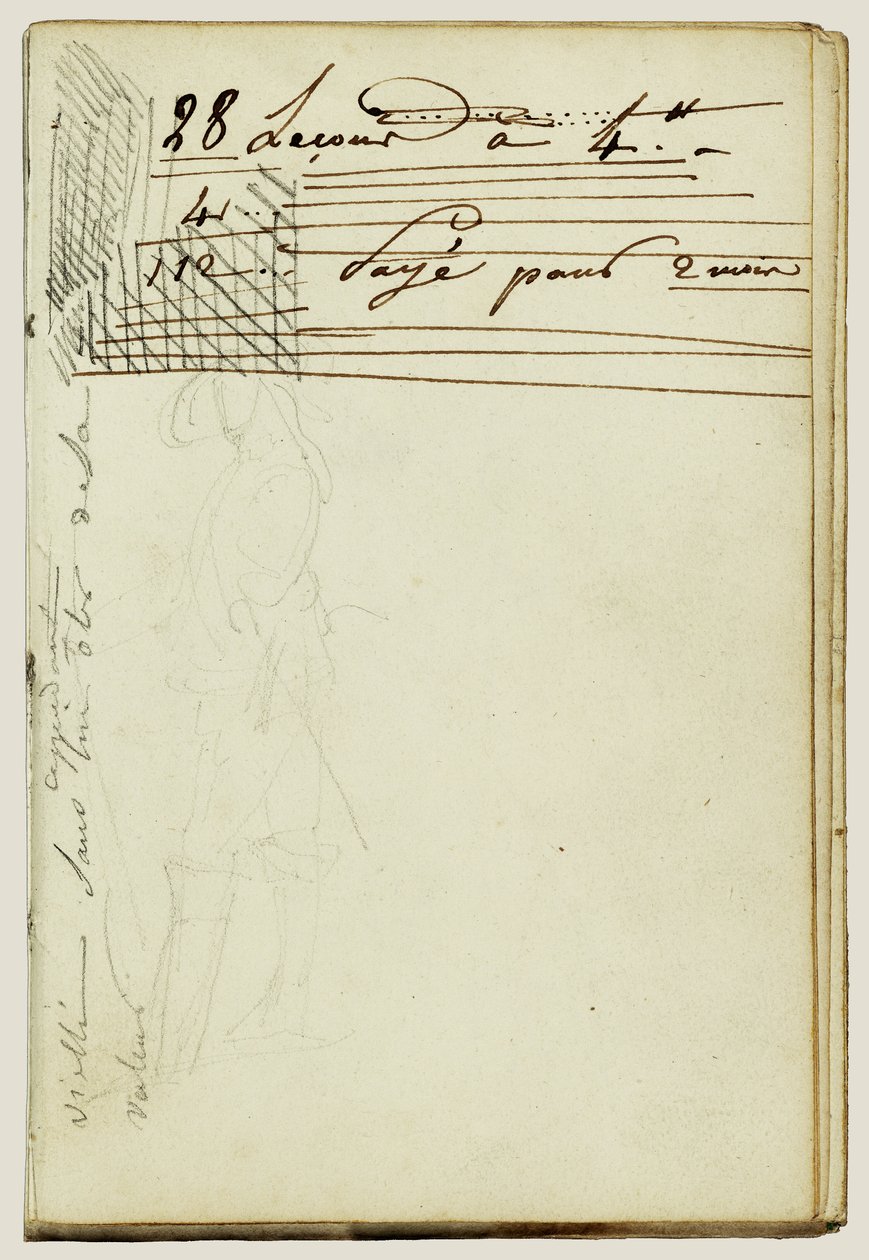 28 Leçons à 4.″–
4...
112... Payé pour 2 mois
vieilli sans cependant
lui ôter de sa
valeur